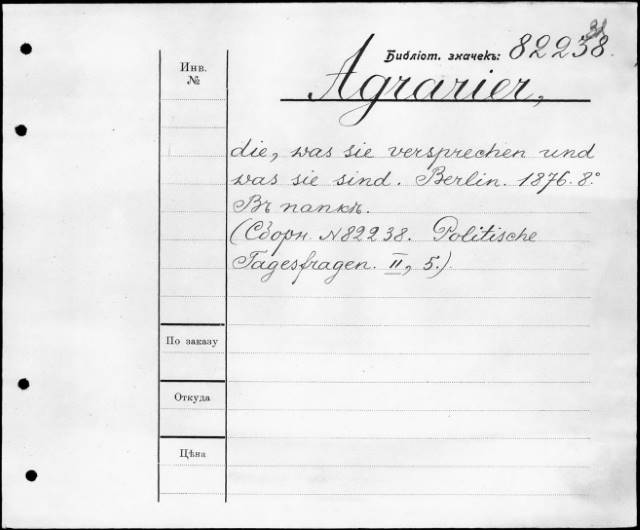 Библіот. значекъ: 82238.
Инв.
№
Agrarier,
die, was sie versprechen und
was sie sind. Berlin. 1876. 8°.
Въ папкѣ.
(Сборн. №82238. Politische
Tagesfragen. II, 5.).
По заказу
Откуда
Цѣна